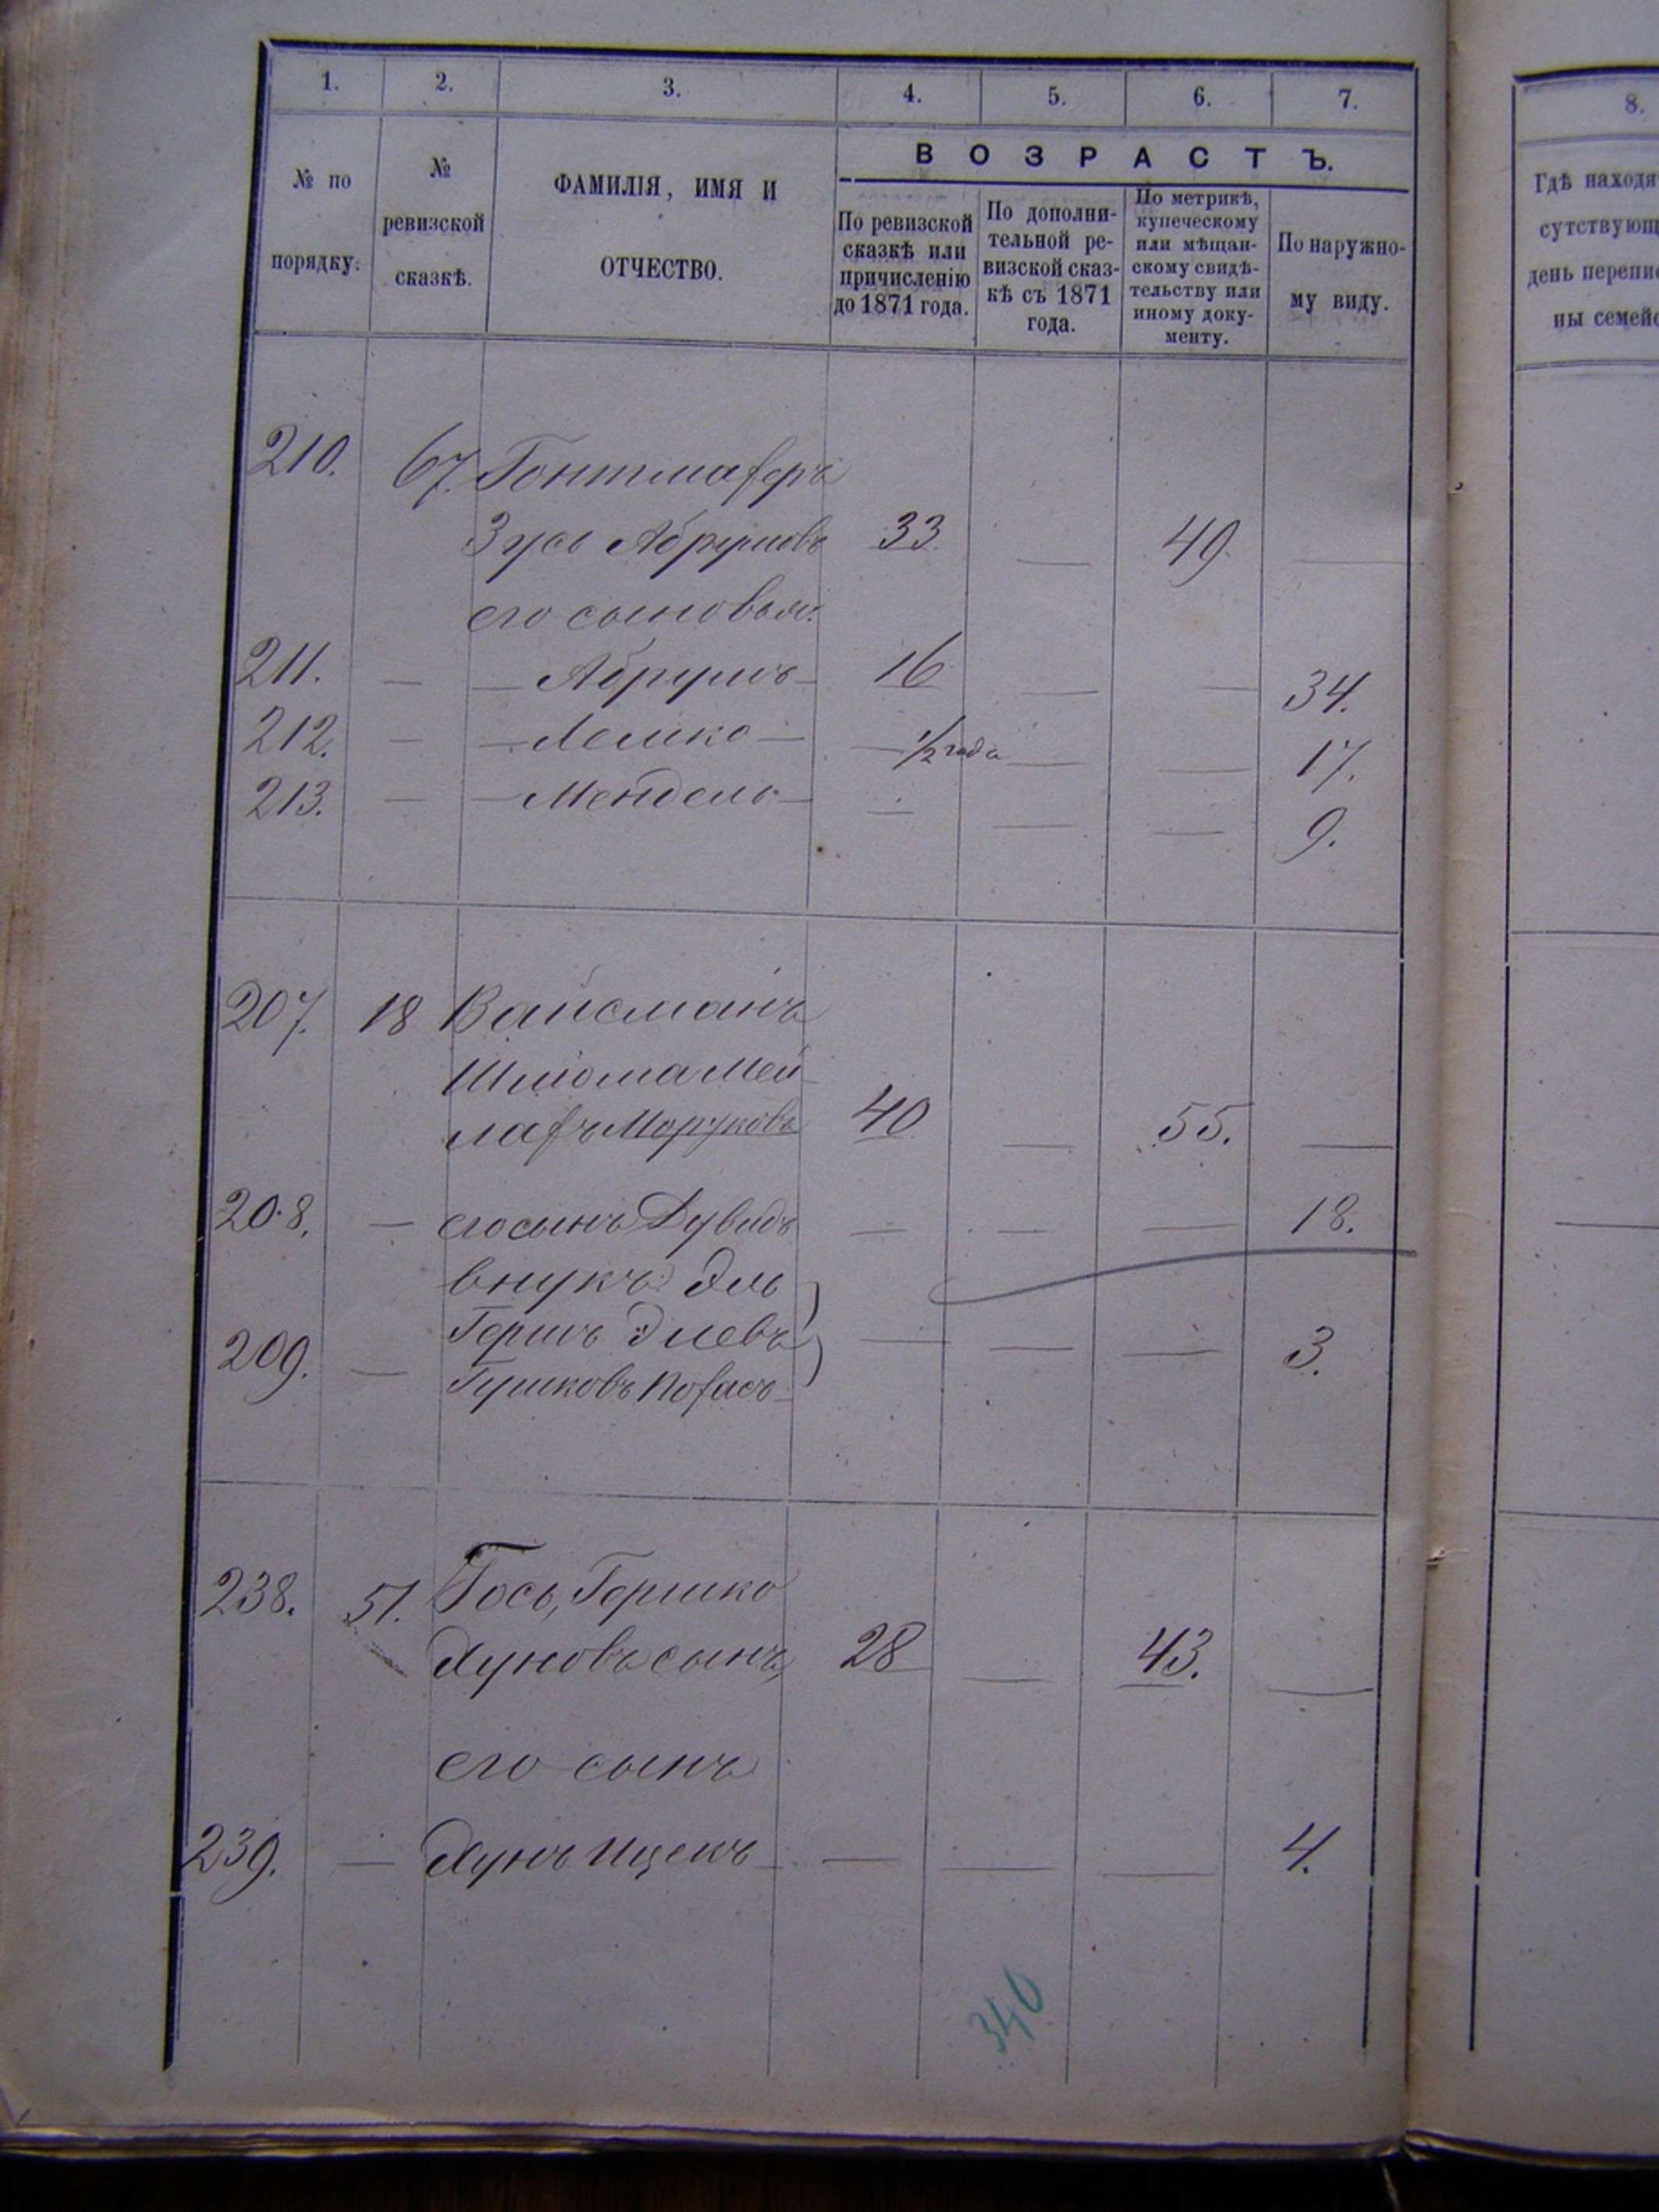 1. 2. 3. 4. 5. 6. 7.
№ по порядку.
№ ревизской сказкѣ.
ФАМИЛІЯ, ИМЯ И ОТЧЕСТВО.
ВОЗРАСТЪ.
По ревизской сказкѣ или причисленію до 1871 года.
По дополнительной ревизской сказкѣ съ 1871 года.
По метрикѣ, купеческому или мѣщанскому свидѣтельству или иному документу.
По наружному виду.
210. 67.
Зусь Абрумовъ 33 — 49. —
его сыновья:
211. — — Абрумъ — 16 — — 34.
212. — — Лейко — — 1/2 года — — 17.
213. — — Мендель — — — — 9.
207. 18 Вайсманъ
Шліома Мей-
лахъ Моруковъ 40 — 55. —
208. — его сынъ Дувидъ — — — 18.
внукъ Эль
209. — Гершъ Элевъ — — — 3.
238. 51. Гось, Гершко
Хуновъ сынъ, 28 — 43. —
его сынъ
239. — Хунъ Ицекъ — — — — 4.
340
8.
Гдѣ находя
сутствующ
день перепи
ны семей